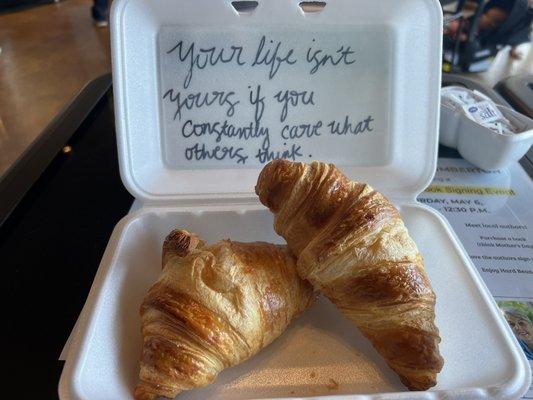 Your life isn't
yours if you
constantly care what
others think.
Book Signing Event
MAY 6,
12:30 P.M.
Meet local authors!
Purchase a book
(think Mother's Day)
the authors sign
Enjoy Hard Bean